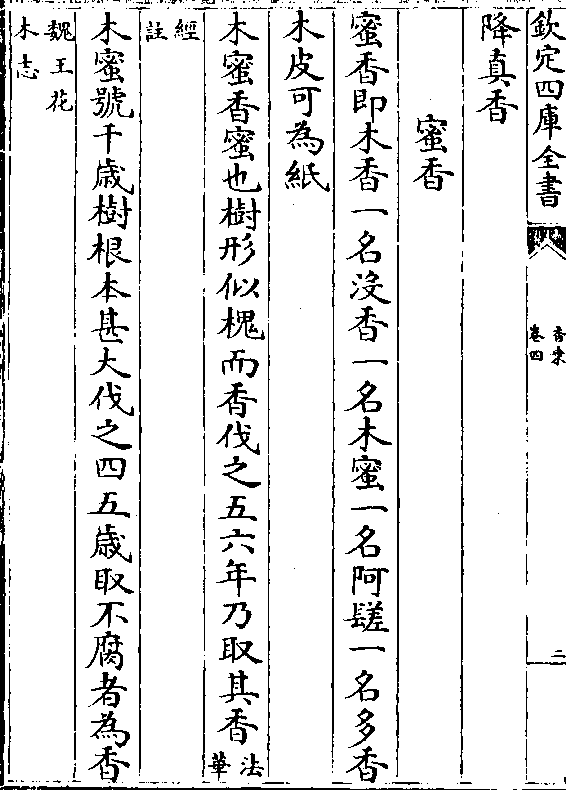 欽定四庫全書
香乗
卷四
二
降真香
蜜香
蜜香即木香一名沒香一名木蜜一名阿𨲠一名多香
木皮可為紙
木蜜香蜜也樹形似槐而香伐之五六年乃取其香法華
經註
木蜜號千歲樹根本甚大伐之四五歲取不腐者為香
魏王花木志